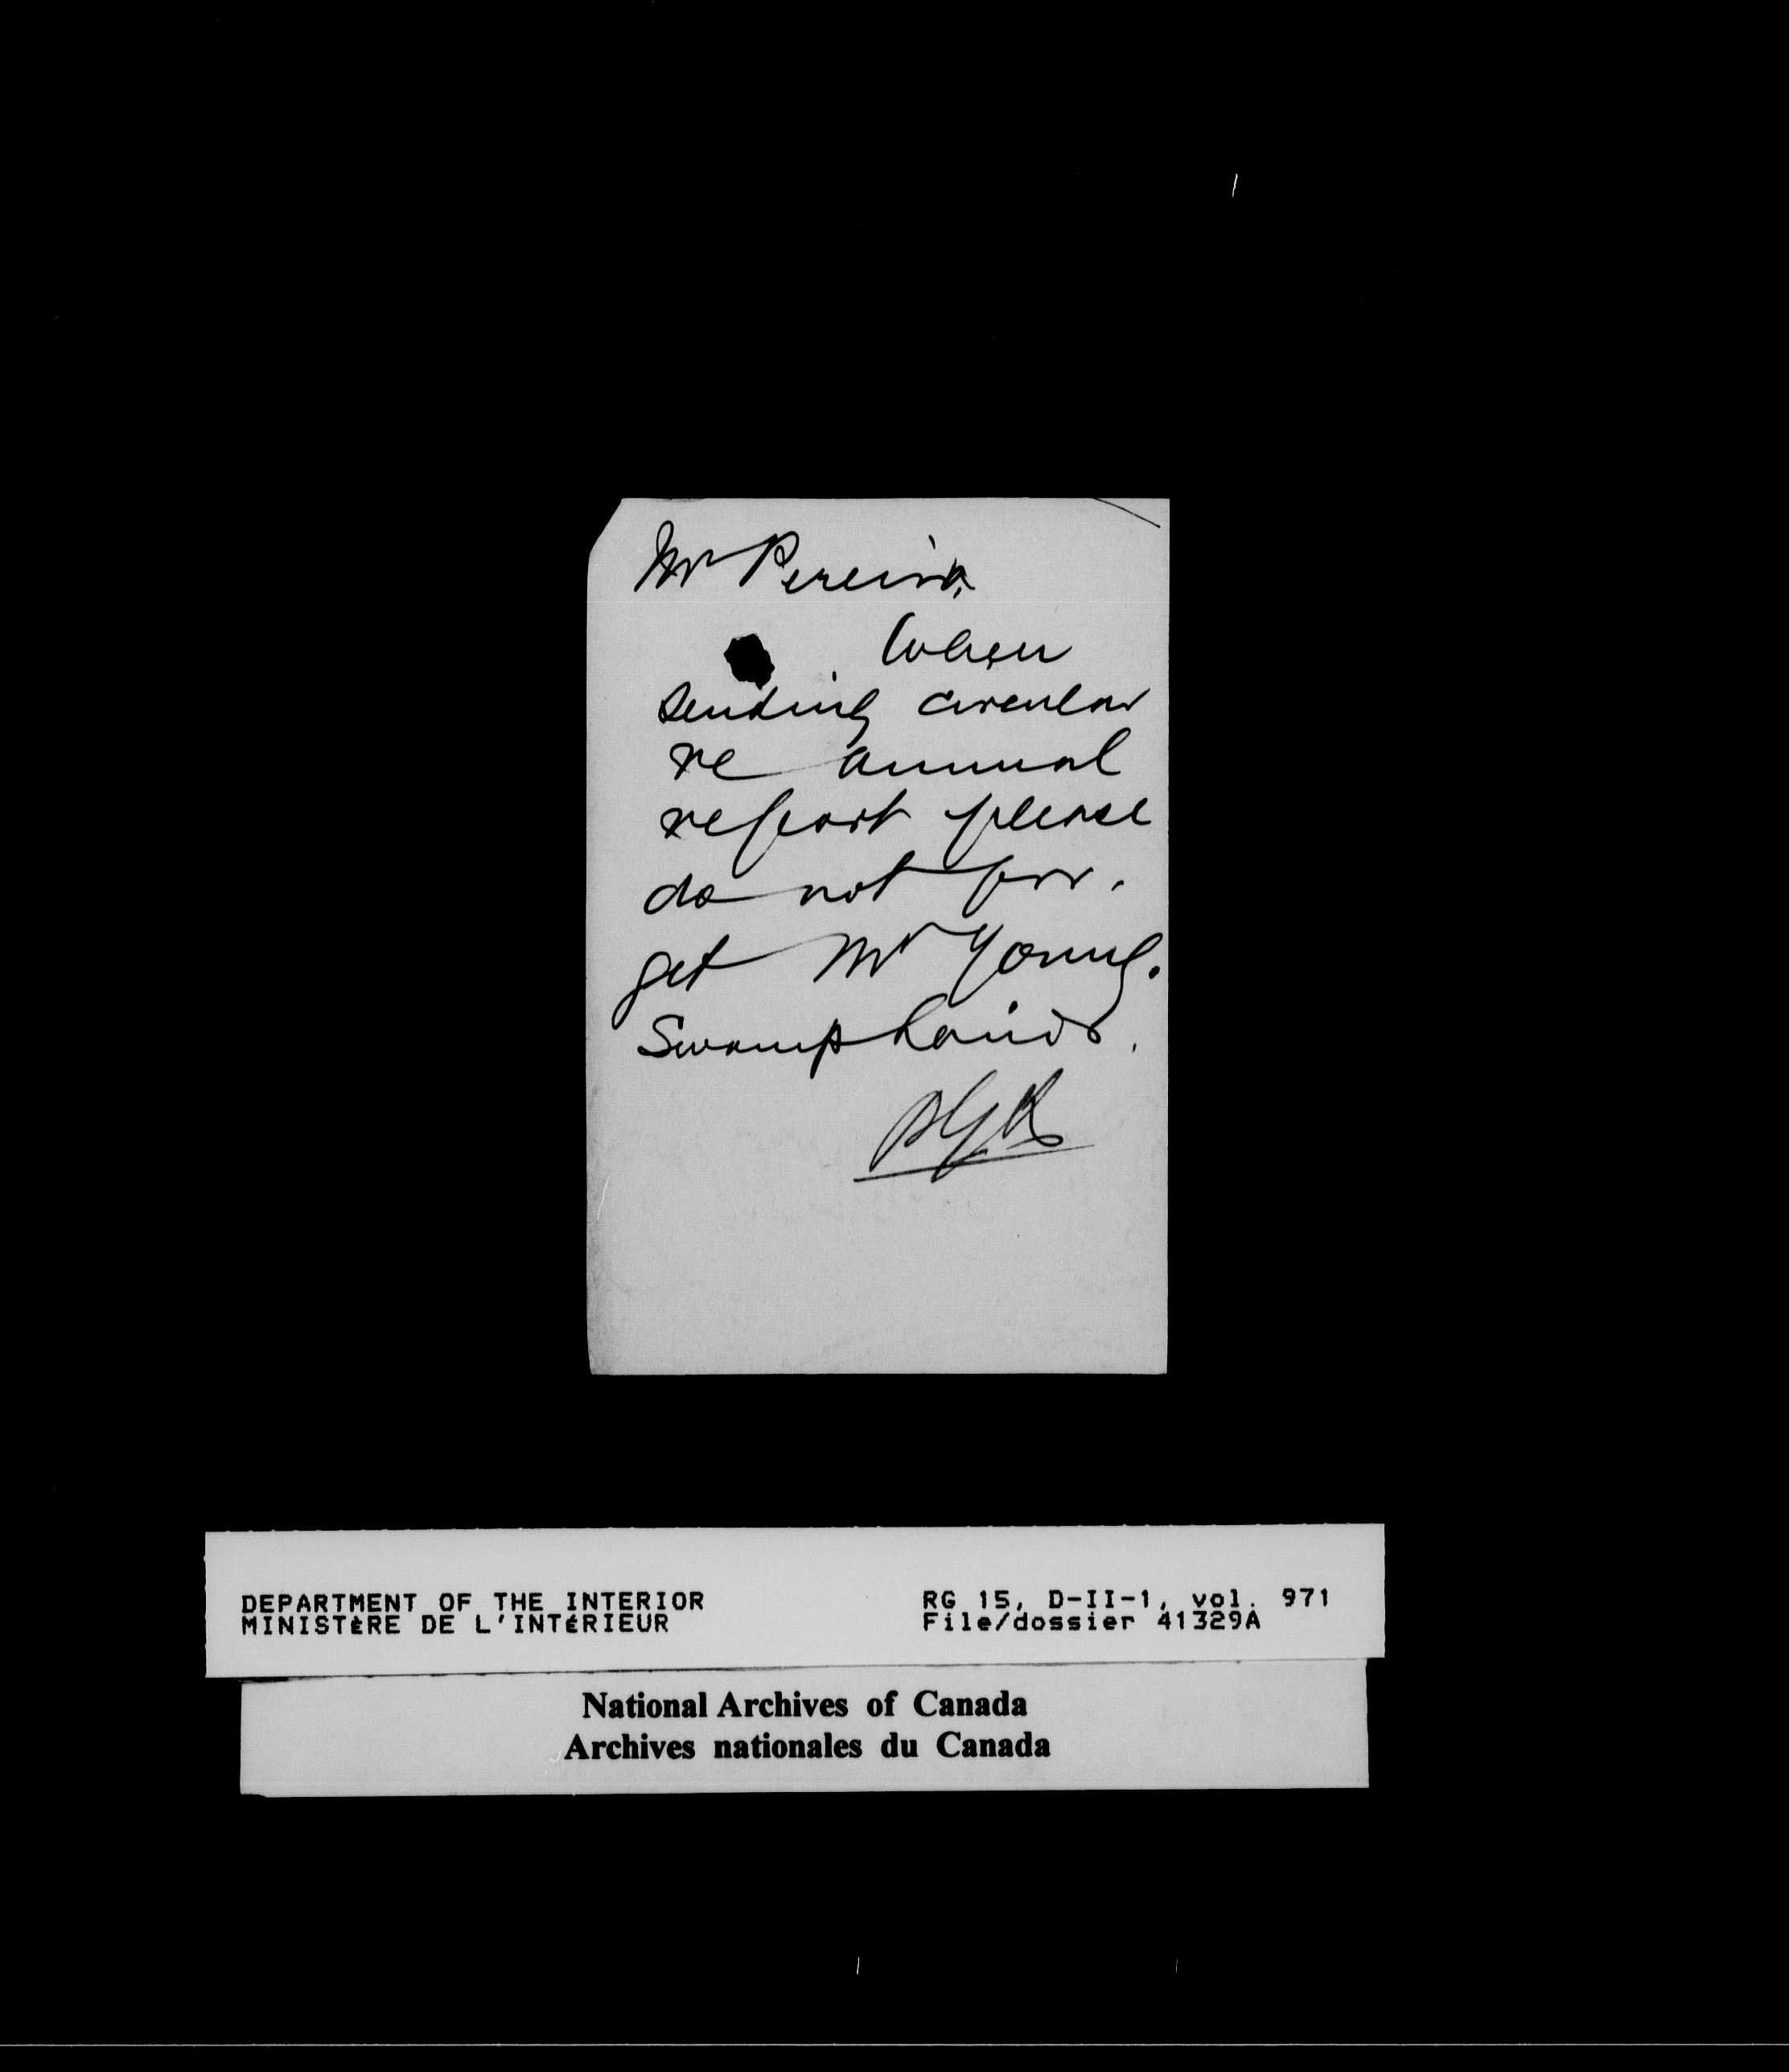 Mr Pereira,
When
sending circular
re annual
report please
do not for-
get Mr Young.
Swamp Lands.
DEPARTMENT OF THE INTERIOR
MINISTÈRE DE L'INTÉRIEUR
RG 15, D-II-1, vol. 971
File/dossier 41329A
National Archives of Canada
Archives nationales du Canada